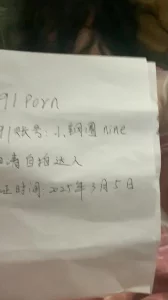 91 Porn
91账号:小鹌鹑nine
自拍达人
证时间 2025年3月5日